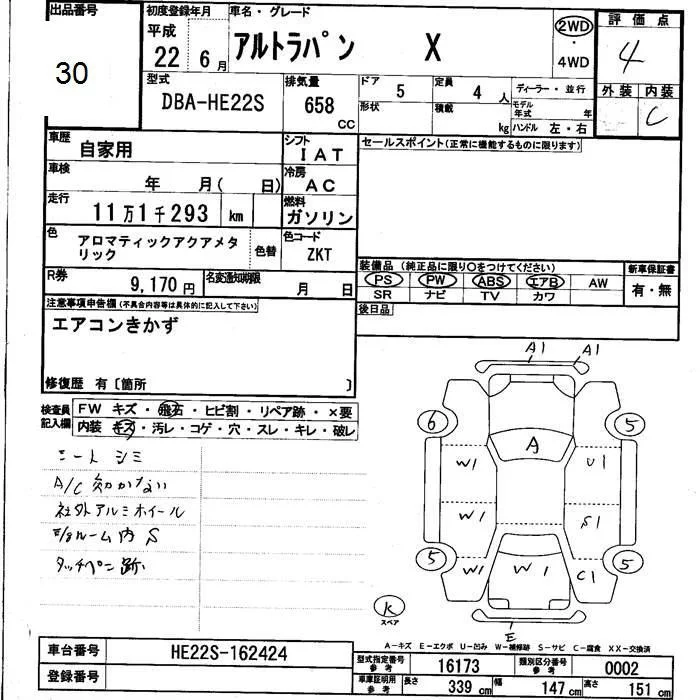 出品番号
30
初度登録年月
平成
22年 6月
車名・グレード
アルトラパン X
2WD
・
4WD
評価点
4
外装 内装
C
型式
DBA-HE22S
排気量
658
CC
ドア 5
定員 4 人
ディーラー・並行
形状
積載
kg
モデル年式 年
ハンドル 左・右
車歴
自家用
シフト
IAT
セールスポイント(正常に機能するものに限ります)
車検
年 月( 日)
冷房
AC
走行
11万1千293 km
燃料
ガソリン
色
アロマティックアクアメタリック
色替
色コード
ZKT
装備品 (純正品に限り○をつけてください)
新車保証書
PS PW ABS エアB AW
SR ナビ TV カワ
有・無
R券
9,170円
名変通知期限
月 日
後日品
注意事項申告欄(不具合内容等は具体的に記入して下さい)
エアコンきかず
修復歴 有〔箇所 〕
検査員記入欄
FW キズ・飛石・ヒビ割・リペア跡・×要
内装 キズ・汚レ・コゲ・穴・スレ・キレ・破レ
シートシミ
A/C 効かない
社外アルミホイール
E/gルーム内 S
タッチペン跡
A1 A1
6 5
A
W1 U1
W1 S1
5 5
W1 W1 C1
K
スペア
E
A-キズ E-エクボ U-凹み W-補修跡 S-サビ C-腐食 XX-交換済
車台番号
HE22S-162424
登録番号
型式指定番号 参考
16173
類別区分番号 参考
0002
車庫証明用 参考
長さ 339 cm
幅 147 cm
高さ 151 cm